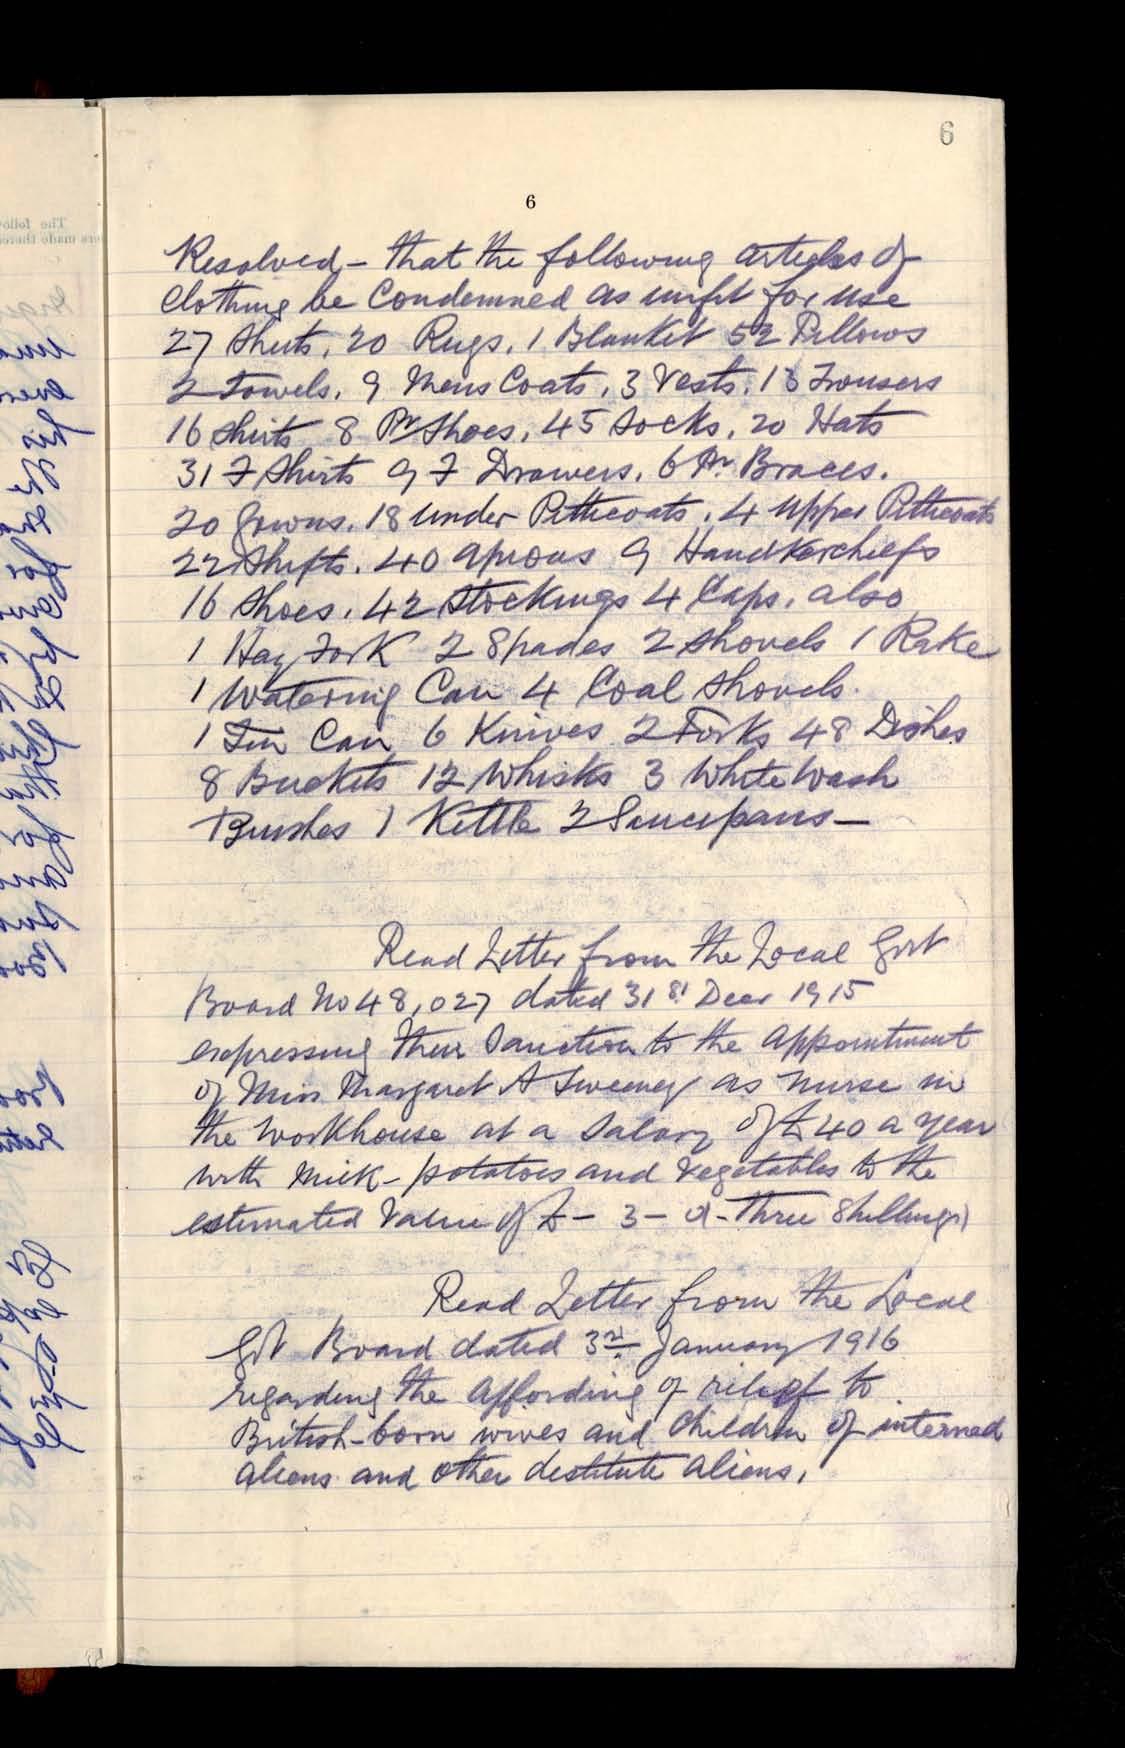 6
6
Resolved – that the following articles of
Clothing be Condemned as unfit for use
27 Sheets, 20 Rugs, 1 Blanket 52 Pillows
2 Towels, 9 Mens Coats, 3 Vests, 13 Trousers
16 Shirts 8 Pr Shoes, 45 Socks, 20 Hats
31 F Shirts 9 F Drawers, 6 Pr Braces.
20 Gowns, 18 under Petticoats, 4 upper Petticoats
22 Shifts, 40 Aprons 9 Handkerchiefs
16 Shoes, 42 Stockings 4 Caps, also
1 Hay Fork 2 Spades 2 Shovels 1 Rake
1 Watering Can 4 Coal Shovels.
1 Tin Can 6 Knives 2 Forks 48 Dishes
8 Buckets 12 Whisks 3 White Wash
Brushes 1 Kettle 2 Saucepans –
Read Letter from the Local Govt
Board No 48,027 dated 31st Decr 1915
expressing their Sanction to the appointment
of Miss Margaret A Sweeney as nurse in
the Workhouse at a Salary of £40 a year
with milk – potatoes and vegetables to the
estimated Value of £ – 3 – 0 – three Shillings)
Read Letter from the Local
Govt Board dated 3rd January 1916
regarding the affording of relief to
British-born wives and children of interned
aliens and other destitute aliens.